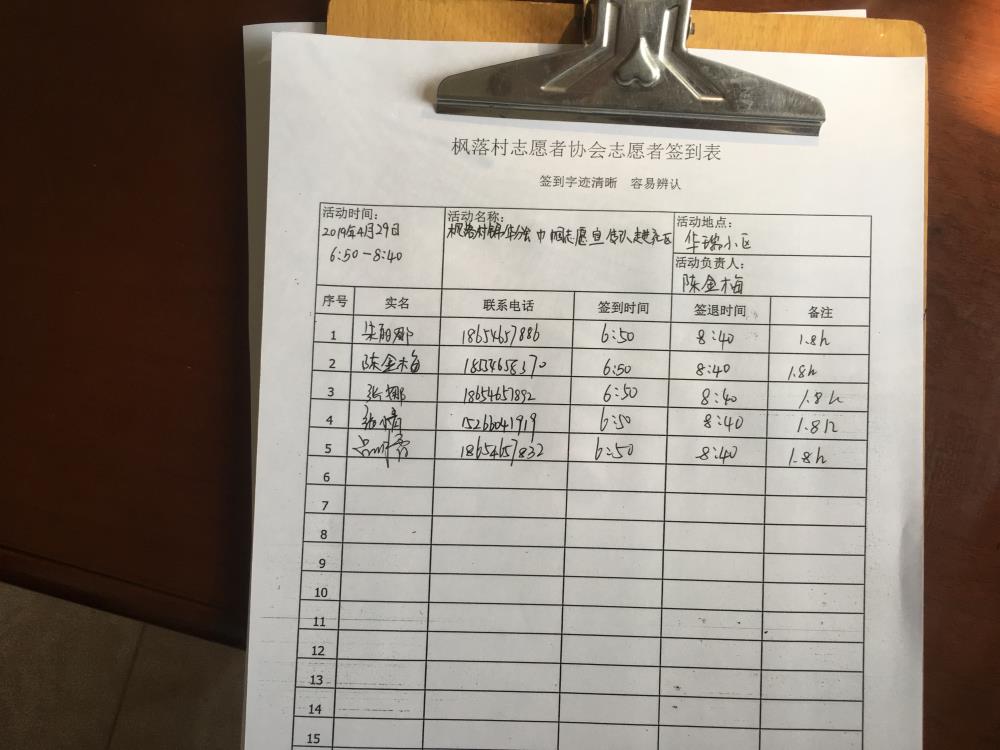 枫落村志愿者协会志愿者签到表
签到字迹清晰 容易辨认
活动时间：
2019年4月29日
6:50-8:40
活动名称：
枫落村锦华分会巾帼志愿宣传队走进社区
活动地点：
华瑞小区
活动负责人：
陈金梅
序号 实名 联系电话 签到时间 签退时间 备注
1 18654657886 6:50 8:40 1.8h
2 陈金梅 18554658370 6:50 8:40 1.8h
3 张娜 18654657892 6:50 8:40 1.8h
4 张倩 15266041919 6:50 8:40 1.8h
5 18654657832 6:50 8:40 1.8h
6
7
8
9
10
11
12
13
14
15